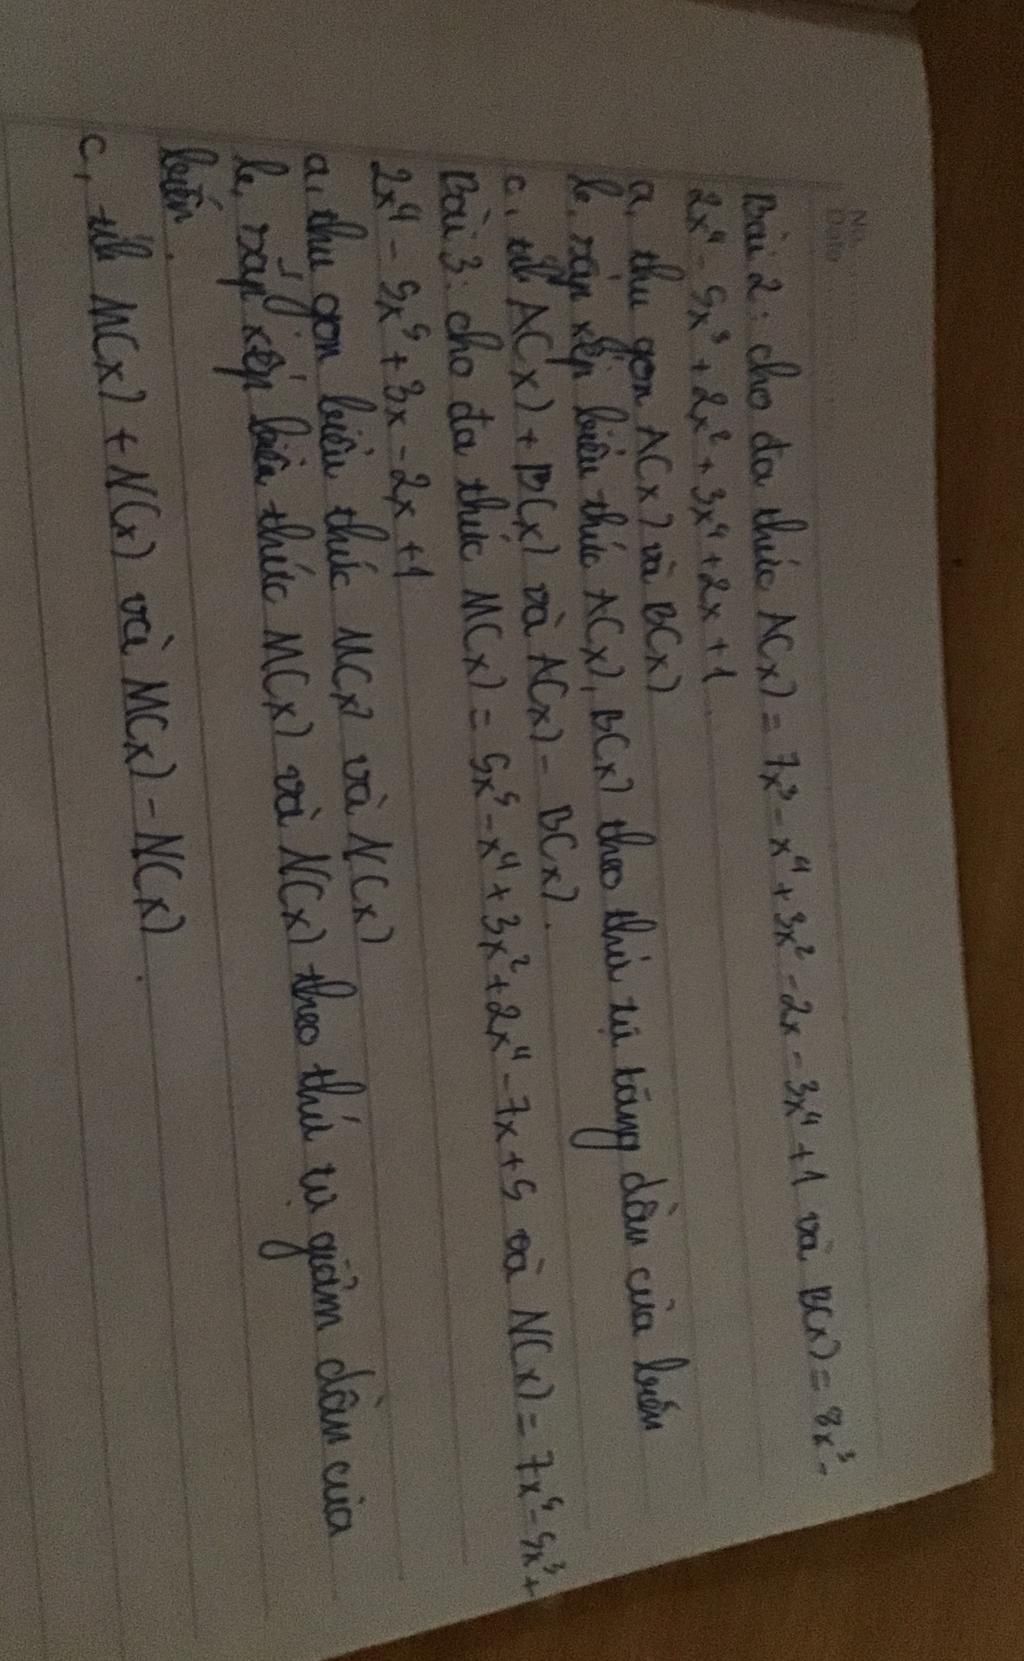 No.
Date
Bài 2: cho đa thức A(x) = 7x³ - x⁴ + 3x² - 2x - 3x⁴ + 1 và B(x) = 8x³ -
2x⁴ - 5x³ + 2x² + 3x⁴ + 2x + 1.
a, thu gọn A(x) và B(x)
b, sắp xếp biểu thức A(x), B(x) theo thứ tự tăng dần của biến
c, tính A(x) + B(x) và A(x) - B(x).
Bài 3: cho đa thức M(x) = 5x⁵ - x⁴ + 3x² + 2x⁴ - 7x + 5 và N(x) = 7x⁵ - 5x³ +
2x⁴ - 5x⁵ + 3x - 2x + 1
a, thu gọn biểu thức M(x) và N(x)
b, sắp xếp biểu thức M(x) và N(x) theo thứ tự giảm dần của
biến.
c, tính M(x) + N(x) và M(x) - N(x).